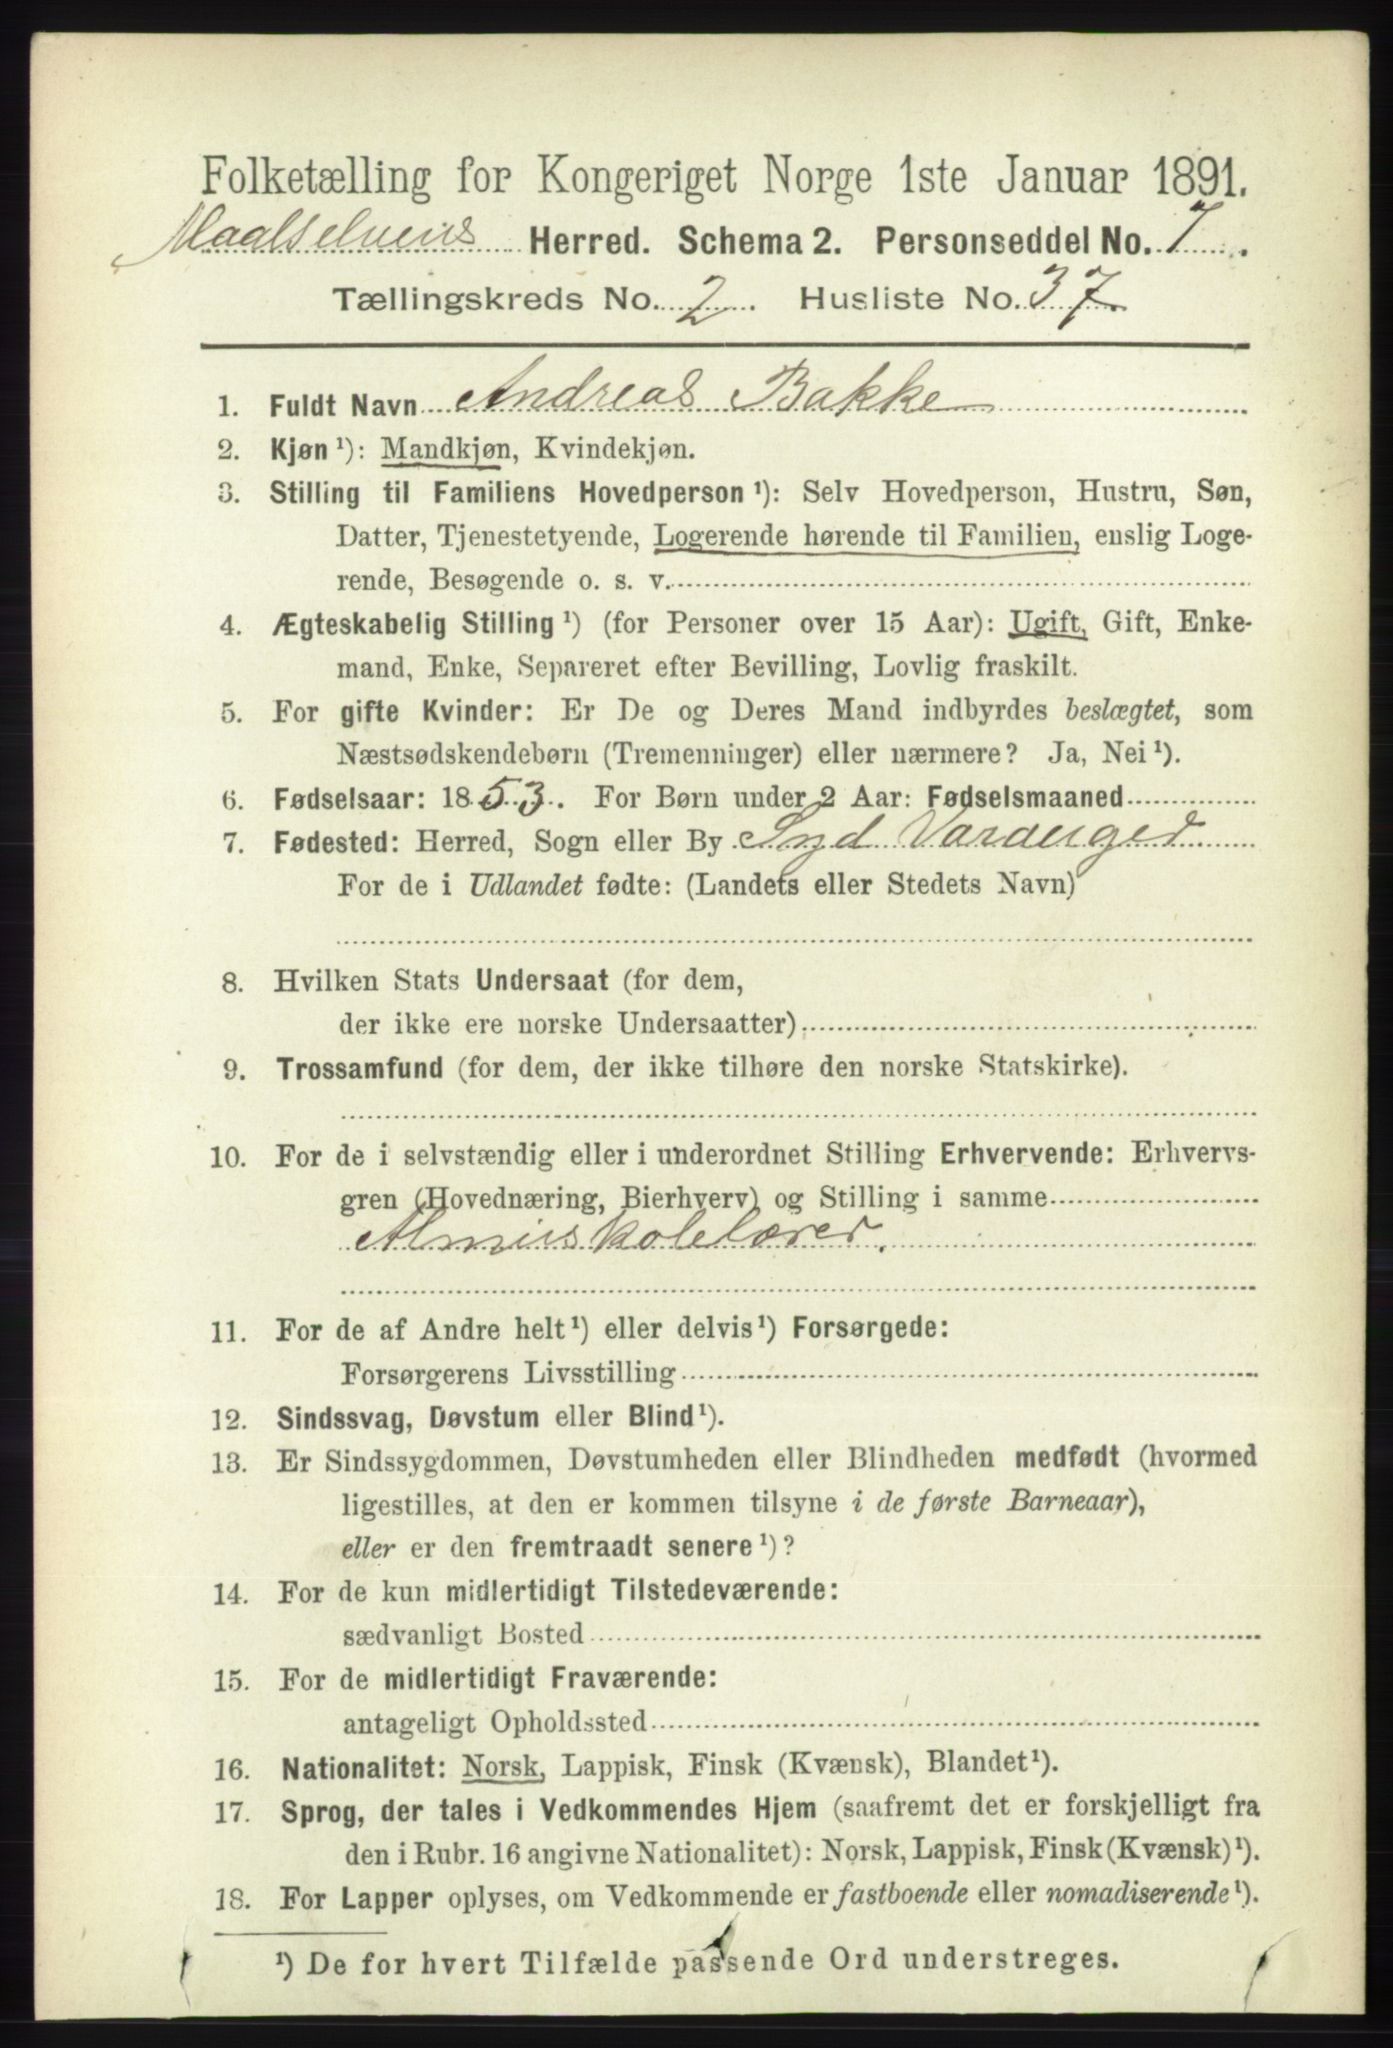 Folketælling for Kongeriget Norge 1ste Januar 1891.
Maalselvens Herred. Schema 2. Personseddel No. 7.
Tællingskreds No. 2. Husliste No. 37.
1. Fuldt Navn Andreas Bakke
2. Kjøn ¹): Mandkjøn, Kvindekjøn.
3. Stilling til Familiens Hovedperson ¹): Selv Hovedperson, Hustru, Søn,
Datter, Tjenestetyende, Logerende hørende til Familien, enslig Loge-
rende, Besøgende o. s. v.
4. Ægteskabelig Stilling ¹) (for Personer over 15 Aar): Ugift, Gift, Enke-
mand, Enke, Separeret efter Bevilling, Lovlig fraskilt.
5. For gifte Kvinder: Er De og Deres Mand indbyrdes beslægtet, som
Næstsødskendebørn (Tremenninger) eller nærmere? Ja, Nei ¹).
6. Fødselsaar: 1853. For Børn under 2 Aar: Fødselsmaaned
7. Fødested: Herred, Sogn eller By Syd Varanger
For de i Udlandet fødte: (Landets eller Stedets Navn)
8. Hvilken Stats Undersaat (for dem,
der ikke ere norske Undersaatter)
9. Trossamfund (for dem, der ikke tilhøre den norske Statskirke).
10. For de i selvstændig eller i underordnet Stilling Erhvervende: Erhvervs-
gren (Hovednæring, Bierhverv) og Stilling i samme
Almuskolelærer.
11. For de af Andre helt ¹) eller delvis ¹) Forsørgede:
Forsørgerens Livsstilling
12. Sindssvag, Døvstum eller Blind ¹).
13. Er Sindssygdommen, Døvstumheden eller Blindheden medfødt (hvormed
ligestilles, at den er kommen tilsyne i de første Barneaar),
eller er den fremtraadt senere ¹)?
14. For de kun midlertidigt Tilstedeværende:
sædvanligt Bosted
15. For de midlertidigt Fraværende:
antageligt Opholdssted
16. Nationalitet: Norsk, Lappisk, Finsk (Kvænsk), Blandet ¹).
17. Sprog, der tales i Vedkommendes Hjem (saafremt det er forskjelligt fra
den i Rubr. 16 angivne Nationalitet): Norsk, Lappisk, Finsk (Kvænsk) ¹).
18. For Lapper oplyses, om Vedkommende er fastboende eller nomadiserende ¹).
¹) De for hvert Tilfælde passende Ord understreges.